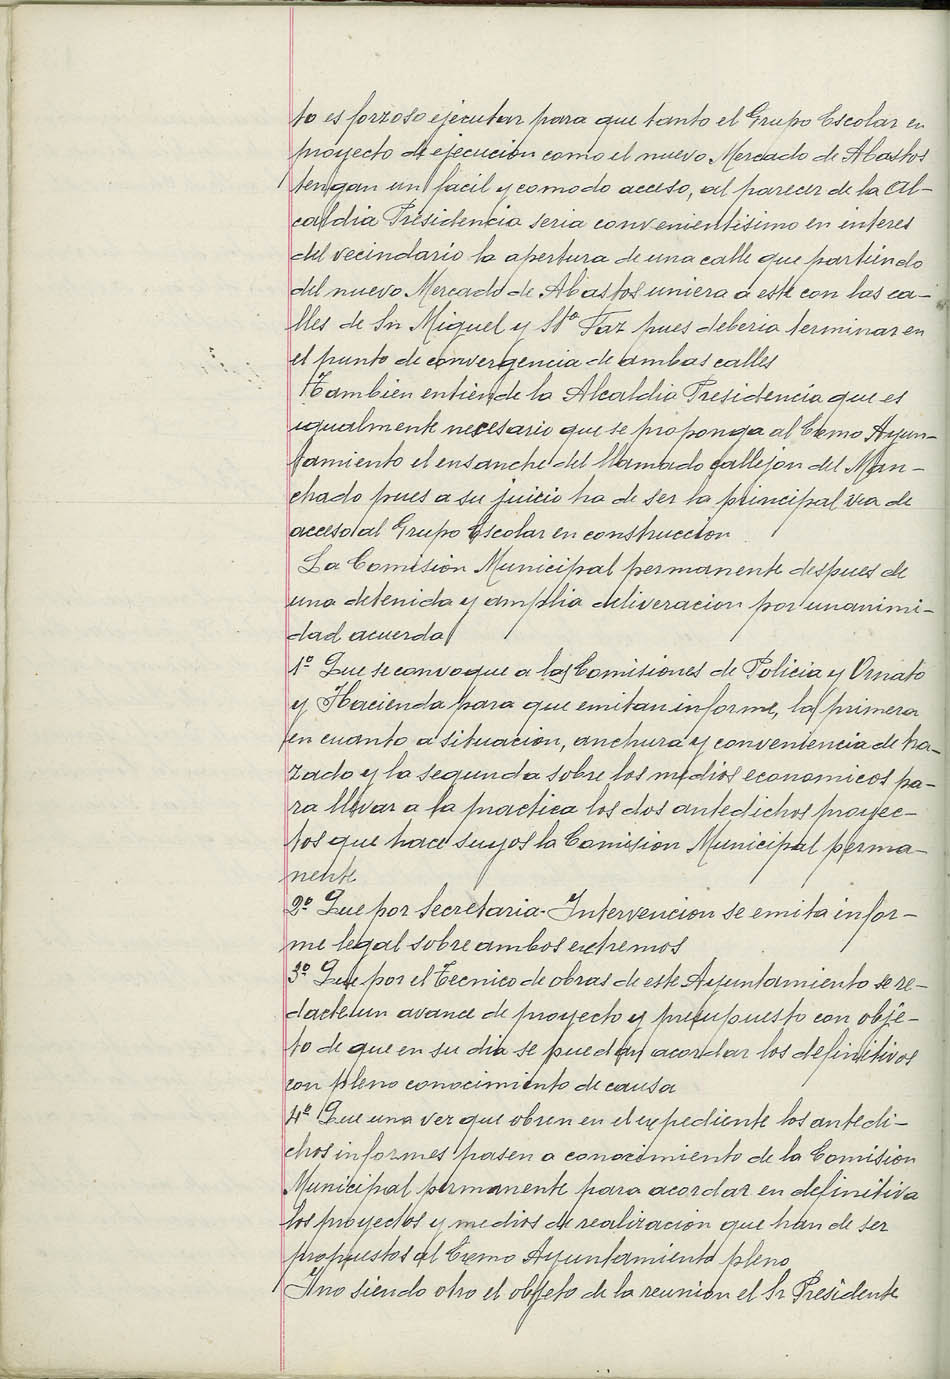 to es forzoso ejecutar para que tanto el Grupo Escolar en
proyecto de ejecucion como el nuevo Mercado de Abastos
tengan un facil y comodo acceso, al parecer de la Al-
caldia Presidencia seria convenientisimo en interes
del vecindario la apertura de una calle que partiendo
del nuevo Mercado de Abastos uniera a este con las ca-
lles de Sn Miguel y Sta Faz pues deberia terminar en
el punto de convergencia de ambas calles
Tambien entiende la Alcaldia Presidencia que es
igualmente necesario que se proponga al Excmo Ayun-
tamiento el ensanche del llamado callejon del Man-
chado pues a su juicio ha de ser la principal via de
acceso al Grupo Escolar en construccion
La Comision Municipal permanente despues de
una detenida y amplia deliveracion por unanimi-
dad acuerda
1º Que se convoque a las Comisiones de Policia y Ornato
y Hacienda para que emitan informe, la primera
en cuanto a situacion, anchura y conveniencia de tra-
zado y la segunda sobre los medios economicos pa-
ra llevar a la practica los dos antedichos proyec-
tos que hace suyos la Comision Municipal perma-
nente
2º Que por Secretaria-Intervencion se emita infor-
me legal sobre ambos extremos
3º Que por el Tecnico de obras de este Ayuntamiento se re-
dacte un avance de proyecto y presupuesto con obje-
to de que en su dia se puedan acordar los definitivos
con pleno conocimiento de causa
4º Que una vez que obren en el expediente los antedi-
chos informes pasen a conocimiento de la Comision
Municipal permanente para acordar en definitiva
los proyectos y medios de realizacion que han de ser
propuestos al Excmo Ayuntamiento pleno
Y no siendo otro el objeto de la reunion el Sr Presidente